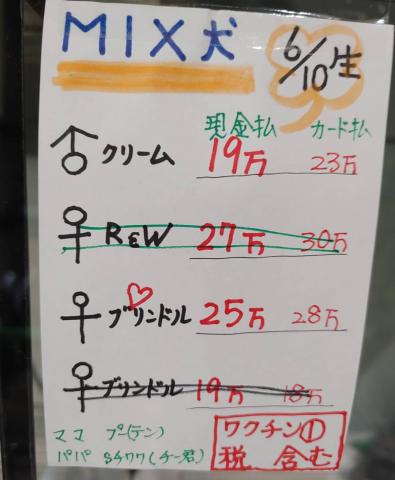 MIX犬 6/10生
現金払 カード払
クリーム 19万 23万
R&W 27万 30万
ブリンドル 25万 28万
ブリンドル 19万 18万
ママ プー(テン)
パパ Sチワワ(チー君)
ワクチン①
税 含む